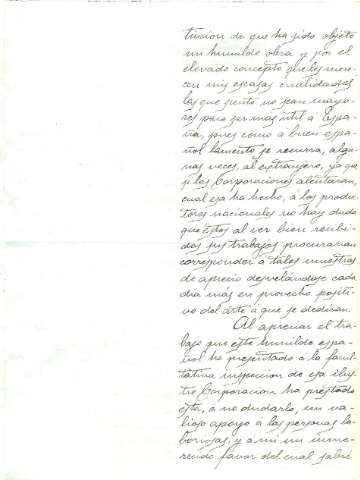 tincion de que ha sido objeto
mi humilde obra y por el
elevado concepto que les mere-
cen mis escasas cualidades
las que siento no sean mayo-
res para ser mas útil á Espa-
ña, pues como á buen espa-
ñol lamento se recurra, algu-
nas veces, al extranjero, ya que
si las Corporaciones alentaran,
cual esa ha hecho, á los produc-
tores nacionales no hay duda
que éstos al ver bien recibi-
dos sus trabajos procurarian
corresponder á tales muestras
de aprecio desvelándose cada
dia más en provecho positi-
vo del arte á que se dedican.
Al apreciar el tra-
bajo que este humilde espa-
ñol ha presentado á la facul-
tativa inspeccion de esa ilus-
tre Corporacion ha prestado
ésta, a no dudarlo, un va-
lioso apoyo á las personas la-
boriosas, y á mi un inme-
recido favor del cual sabré